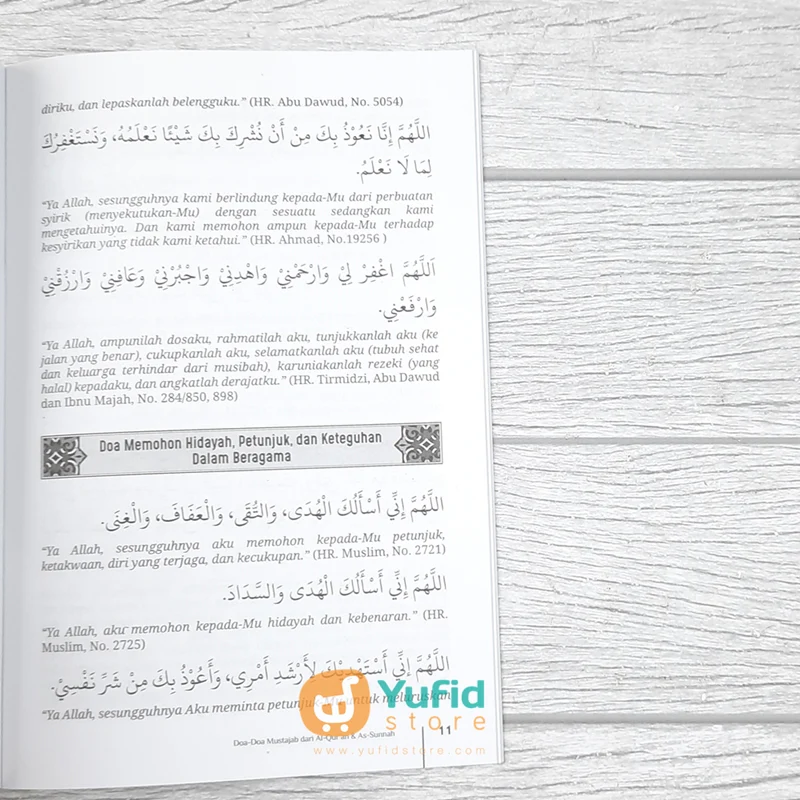 diriku, dan lepaskanlah belengguku.” (HR. Abu Dawud, No. 5054)
اللَّهُمَّ إِنَّا نَعُوْذُ بِكَ مِنْ أَنْ نُشْرِكَ بِكَ شَيْئًا نَعْلَمُهُ، وَنَسْتَغْفِرُكَ
لِمَا لَا نَعْلَمُ.
“Ya Allah, sesungguhnya kami berlindung kepada-Mu dari perbuatan
syirik (menyekutukan-Mu) dengan sesuatu sedangkan kami
mengetahuinya. Dan kami memohon ampun kepada-Mu terhadap
kesyirikan yang tidak kami ketahui.” (HR. Ahmad, No.19256 )
اَللَّهُمَّ اغْفِرْ لِيْ وَارْحَمْنِيْ وَاهْدِنِيْ وَاجْبُرْنِيْ وَعَافِنِيْ وَارْزُقْنِيْ
وَارْفَعْنِي.
“Ya Allah, ampunilah dosaku, rahmatilah aku, tunjukkanlah aku (ke
jalan yang benar), cukupkanlah aku, selamatkanlah aku (tubuh sehat
dan keluarga terhindar dari musibah), karuniakanlah rezeki (yang
halal) kepadaku, dan angkatlah derajatku.” (HR. Tirmidzi, Abu Dawud
dan Ibnu Majah, No. 284/850, 898)
Doa Memohon Hidayah, Petunjuk, dan Keteguhan
Dalam Beragama
اللَّهُمَّ إِنِّي أَسْأَلُكَ الْهُدَى، وَالتُّقَى، وَالْعَفَافَ، وَالْغِنَى.
“Ya Allah, sesungguhnya aku memohon kepada-Mu petunjuk,
ketakwaan, diri yang terjaga, dan kecukupan.” (HR. Muslim, No. 2721)
اللَّهُمَّ إِنِّي أَسْأَلُكَ الْهُدَى وَالسَّدَادَ.
“Ya Allah, aku memohon kepada-Mu hidayah dan kebenaran.” (HR.
Muslim, No. 2725)
اللَّهُمَّ إِنِّي أَسْتَهْدِيْكَ لِأَرْشَدِ أَمْرِي، وَأَعُوْذُ بِكَ مِنْ شَرِّ نَفْسِيْ.
“Ya Allah, sesungguhnya Aku meminta petunjuk-Mu untuk meluruskan
Yufid
store
www.yufidstore.com
Doa-Doa Mustajab dari Al-Qur'an & As-Sunnah
11